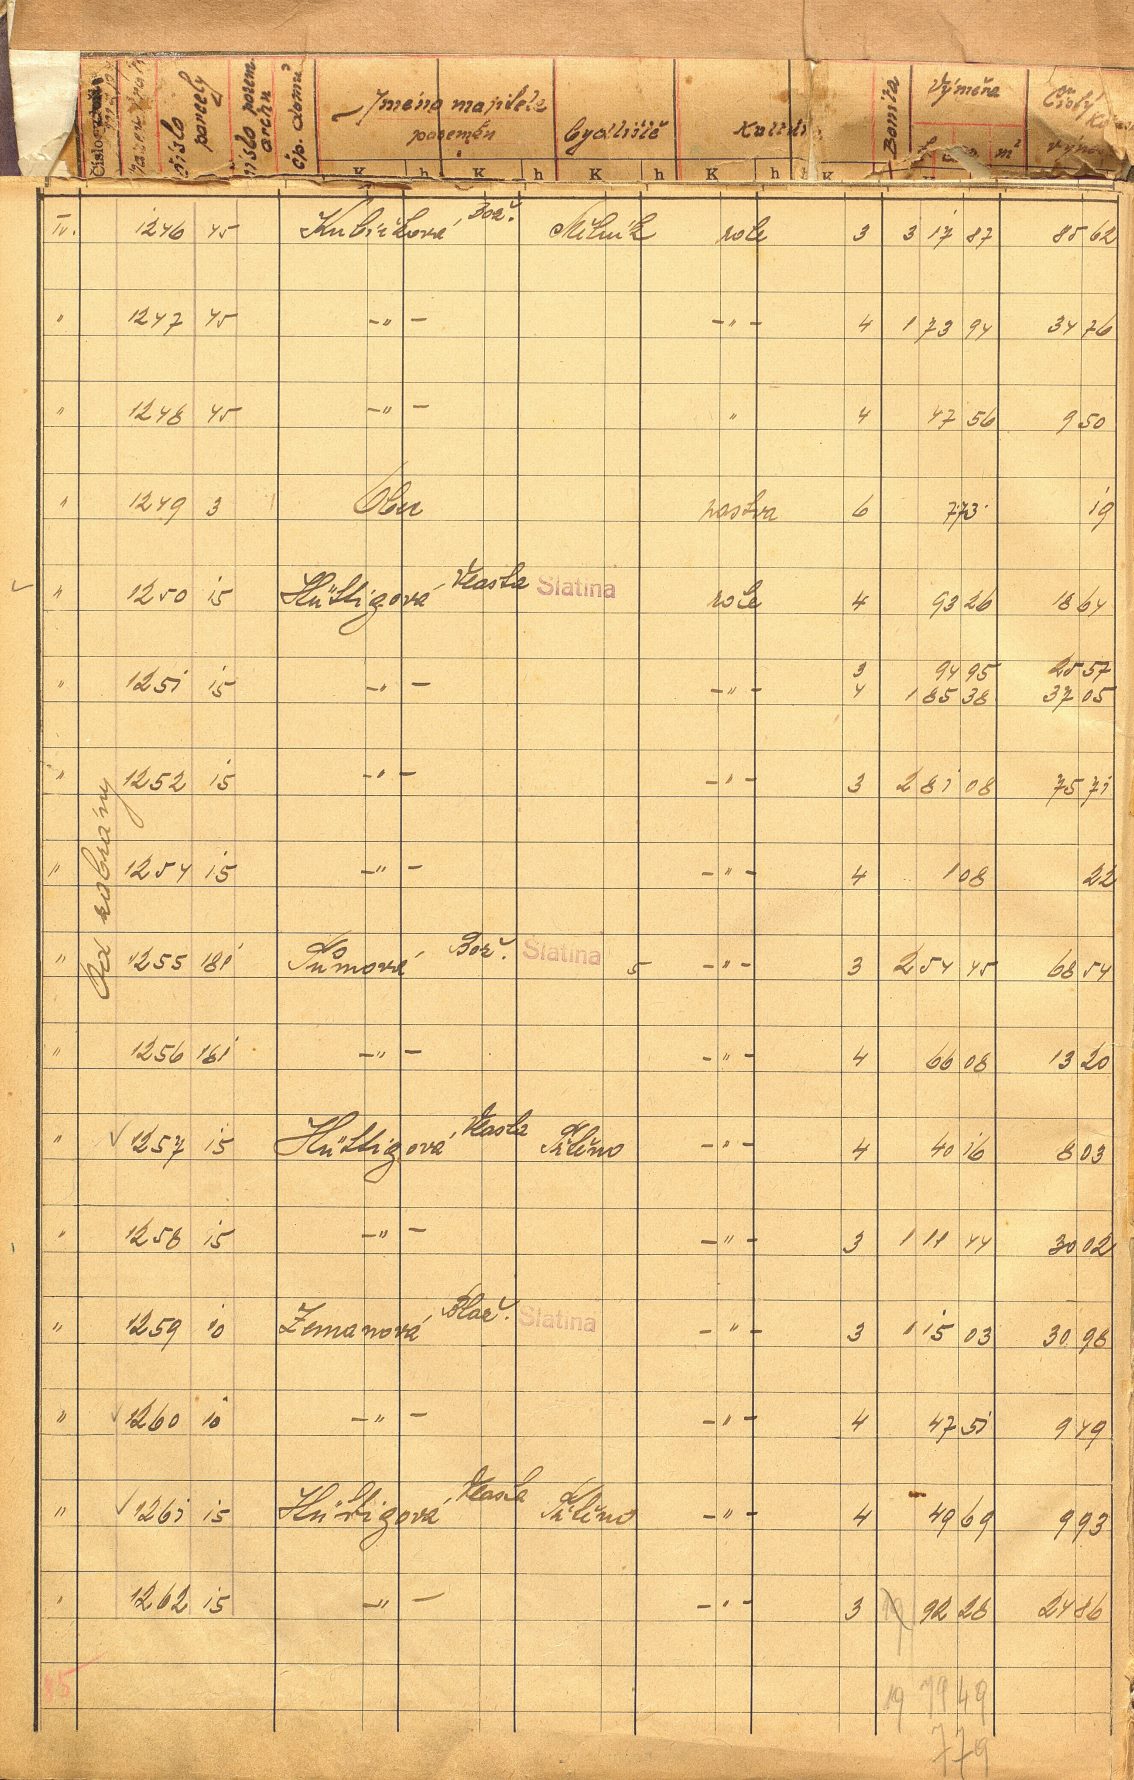 číslo parcely
číslo pozem. archu
čp. domů
Jména majitele pozemku
bydliště
Kultura
Bonita
Výměra
m²
Čistý
K h K h K h K h K
IV. 1246 45 Kubíčková Bož. Mělník role 3 3 17 87 85 62
" 1247 45 -"- -"- 4 1 73 94 34 76
" 1248 45 -"- " 4 47 56 9 50
" 1249 3 Obec pastva 6 7 73 19
" 1250 15 Hüttigová Vlasta Slatina role 4 93 26 18 64
3 94 95 25 57
" 1251 15 -"- -"- 4 1 85 38 37 05
" 1252 15 -"- -"- 3 2 81 08 75 71
Od zobrány
" 1254 15 -"- -"- 4 1 08 22
" 1255 181 Tůmová Bož. Slatina 5 -"- 3 2 54 45 68 54
" 1256 181 -"- -"- 4 66 08 13 20
" ✓ 1257 15 Hüttigová Vlasta -"- 4 40 16 8 03
" 1258 15 -"- -"- 3 1 11 44 30 02
" 1259 10 Zemanová Slatina -"- 3 1 15 03 30 98
" ✓ 1260 10 -"- -"- 4 47 51 9 49
" ✓ 1261 15 Hüttigová Vlasta -"- 4 49 69 9 93
" 1262 15 -"- -"- 3 92 28 24 86
19 79 49
779